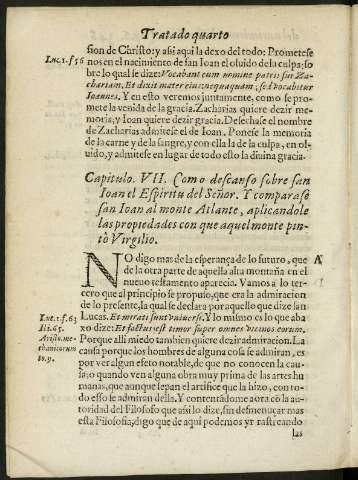 Tratado quarto
sion de Christo: y assi aqui la dexo del todo: Prometese
Luc. 1. f 56
nos en el nacimiento de san Ioan el oluido de la culpa; so
bre lo qual se dize: Vocabant eum nomine patris sui Za-
chariam. Et dixit mater eius: nequaquam; sed vocabitur
Ioannes. Y en esto veremos juntamente, como se pro-
mete la venida de la gracia. Zacharias quiere dezir me-
moria; y Ioan quiere dezir gracia. Desechase el nombre
de Zacharias admitese el de Ioan. Ponese la memoria
de la carne y de la sangre, y con ella la de la culpa, en ol-
uido, y admitese en lugar de todo esto la diuina gracia.
Capitulo. VII. Como descanso sobre san
Ioan el Espiritu del Señor. Y comparase
san Ioan al monte Atlante, aplicandole
las propiedades con que aquel monte pin-
tò Virgilio.
NO digo mas de la esperança de lo futuro, que
A
de la otra parte de aquella alta montaña en el
nueuo testamento aparecia. Vamos a lo ter-
cero que al principio se propuso, que era la admiracion
de lo presente, la qual se declara por aquello que dize san
Luc. 1. f. 63
Lucas. Et mirati sunt vniuersi. Y lo mismo es lo que aba
Ibi. 65.
xo dize: Et factus est timor super omnes vicinos eorum.
Aristo. me-
chanicorum
to. 9.
Porque alli miedo tambien quiere dezir admiracion. La
causa porque los hombres de alguna cosa se admiran, es
por ver algun efeto notable, de que no conocen la cau-
sa; o quando ven alguna obra muy prima de las artes hu
manas, que aunque sepan el artifice que la hizo, con to-
do esso se admiran della. Y contentãdome aora cõ la au-
toridad del Filosofo que assi lo dize, sin desmenuçar mas
esta Filosofia; digo que de aqui podemos yr rastreando
las